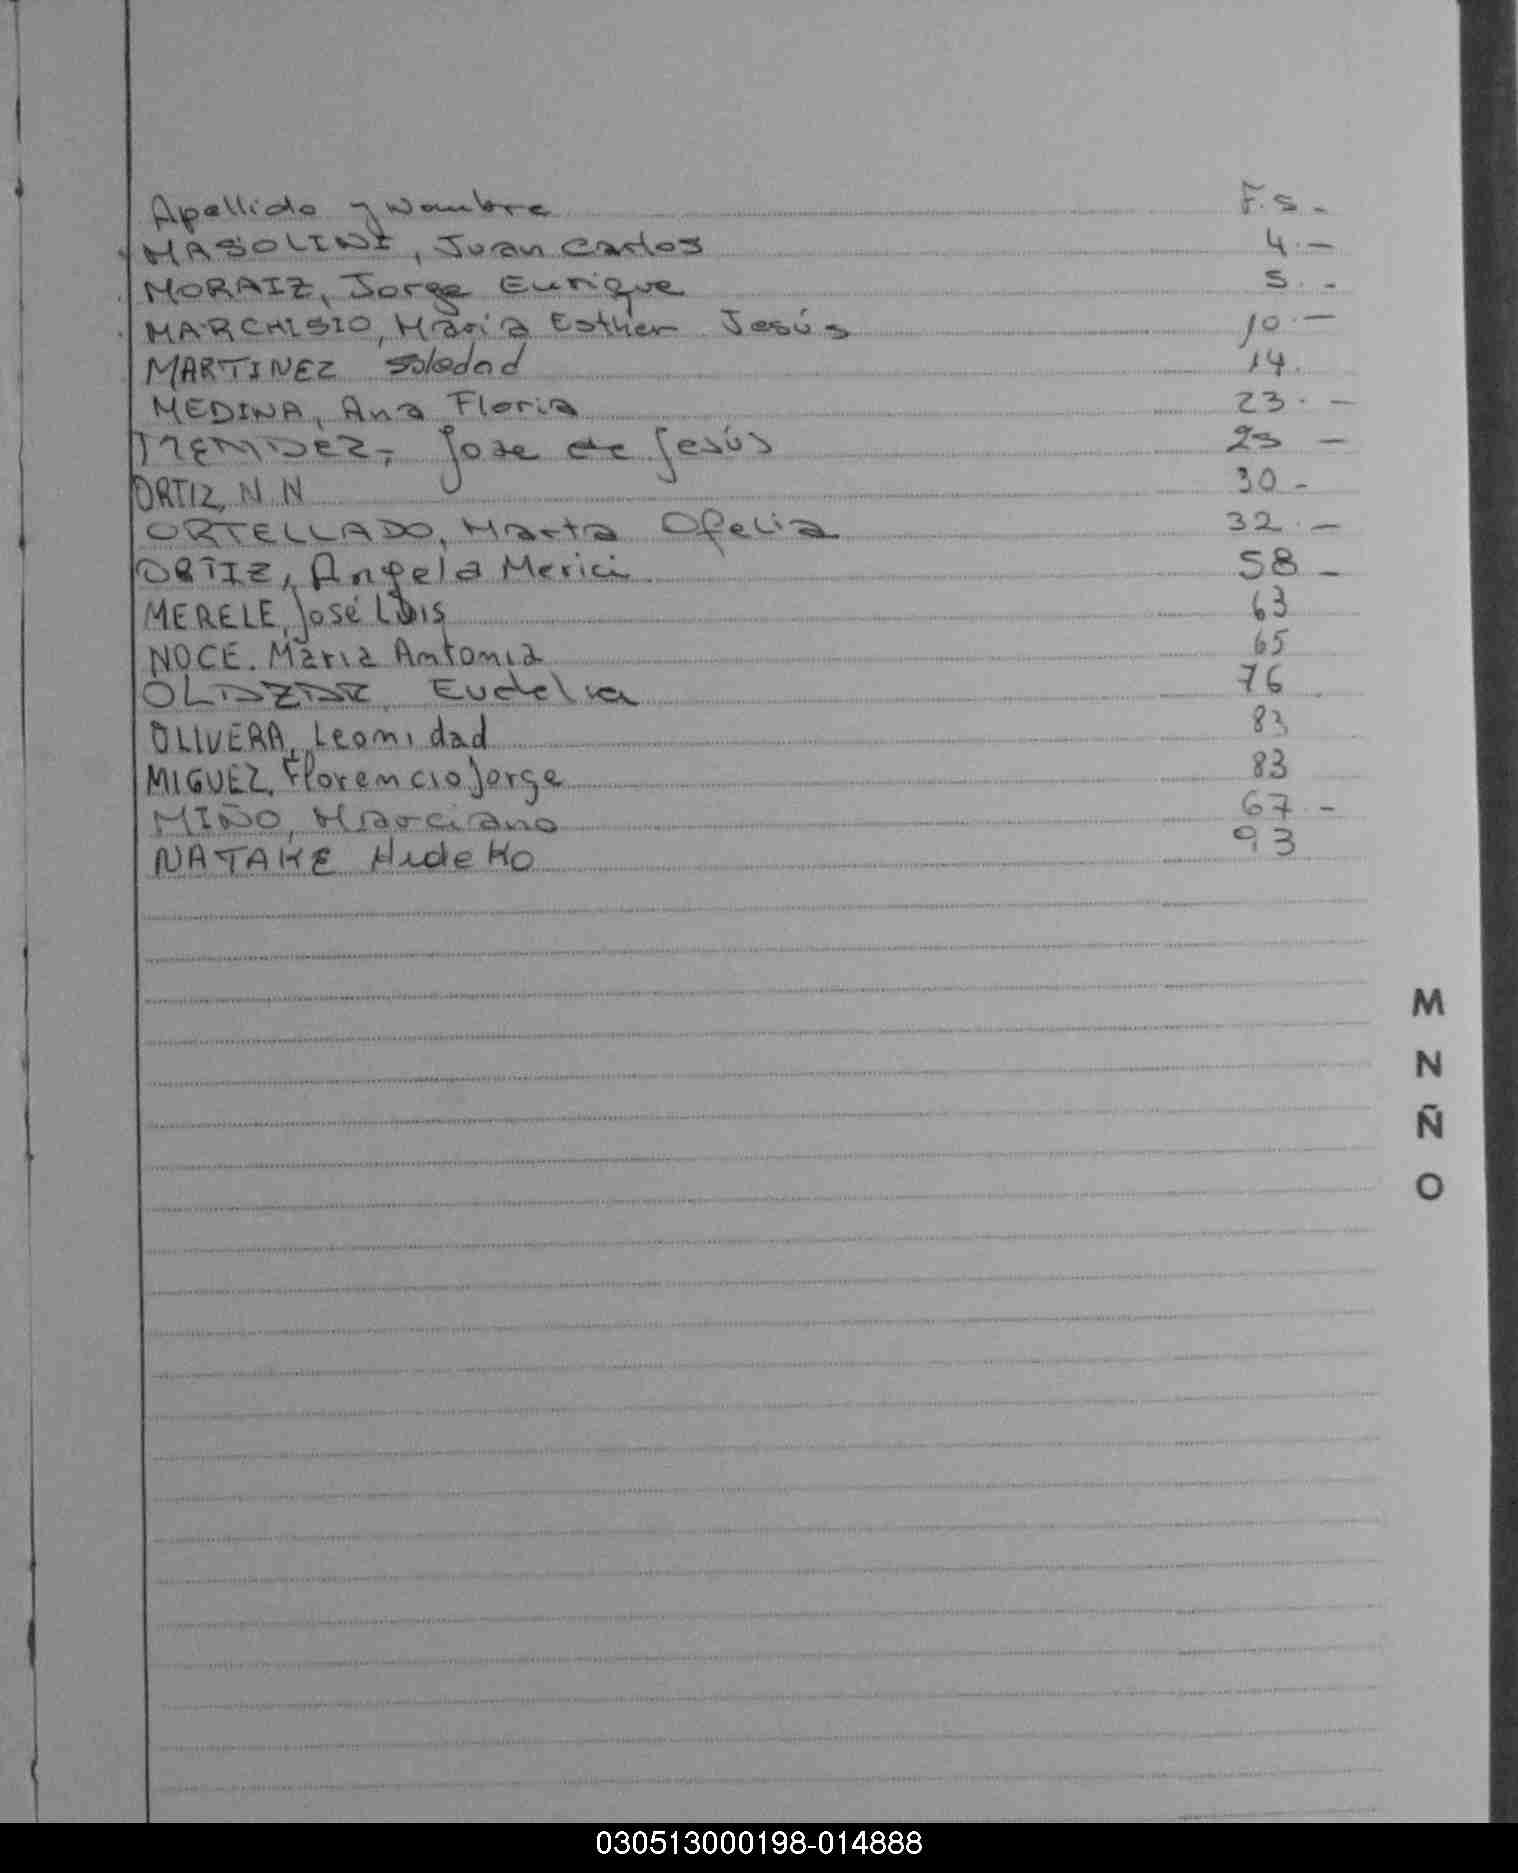 Apellido y Nombre F.s.-
MASOLINI, Juan Carlos 4.-
MORAIZ, Jorge Enrique 5.-
MARCHISIO, María Esther Jesús 10.-
MARTINEZ Soledad 14.
MEDINA, Ana Floria 23.-
MENDEZ, Jose de Jesús 25 -
ORTIZ, N N 30-
ORTELLADO, Marta Ofelia 32.-
ORTIZ, Angela Merici 58-
MERELE, José Luis 63
NOCE. María Antonia 65
OLAZAR, Eudelia 76
OLIVERA, Leonidad 83
MIGUEZ, Florencio Jorge 83
MIÑO, Marciano 67.-
NATAKE HideKo 93
M
N
Ñ
O
030513000198-014888